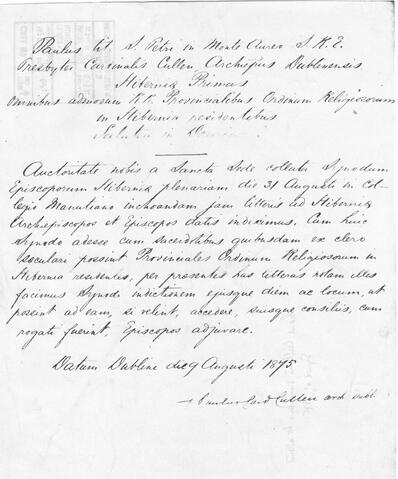 Paulus tit. S. Petri in Monte Aureo S. R. E.
Presbyter Cardinalis Cullen Archiepus Dublinensis
Hiberniæ Primas
Omnibus admodum RR. Provincialibus Ordinum Religiosorum
in Hibernia residentibus
Salutem in Domino
Auctoritate nobis a Sancta Sede collata Synodum
Episcoporum Hiberniæ plenariam die 31 Augusti in Col-
legio Manutiano inchoandam jam litteris ad Hiberniæ
Archiepiscopos et Episcopos datis indiximus. Cum huic
Synodo adesse cum sacerdotibus quibusdam ex clero
seculari possint Provinciales Ordinum Religiosorum in
Hibernia residentes, per præsentes has litteras notam illis
facimus Synodi indictionem ejusque diem ac locum, ut
possint ad eam, si velint, accedere, suisque consiliis, cum
rogati fuerint, Episcopos adjuvare.
Datum Dublini die 9 Augusti 1875
+ Paulus Card Cullen arch